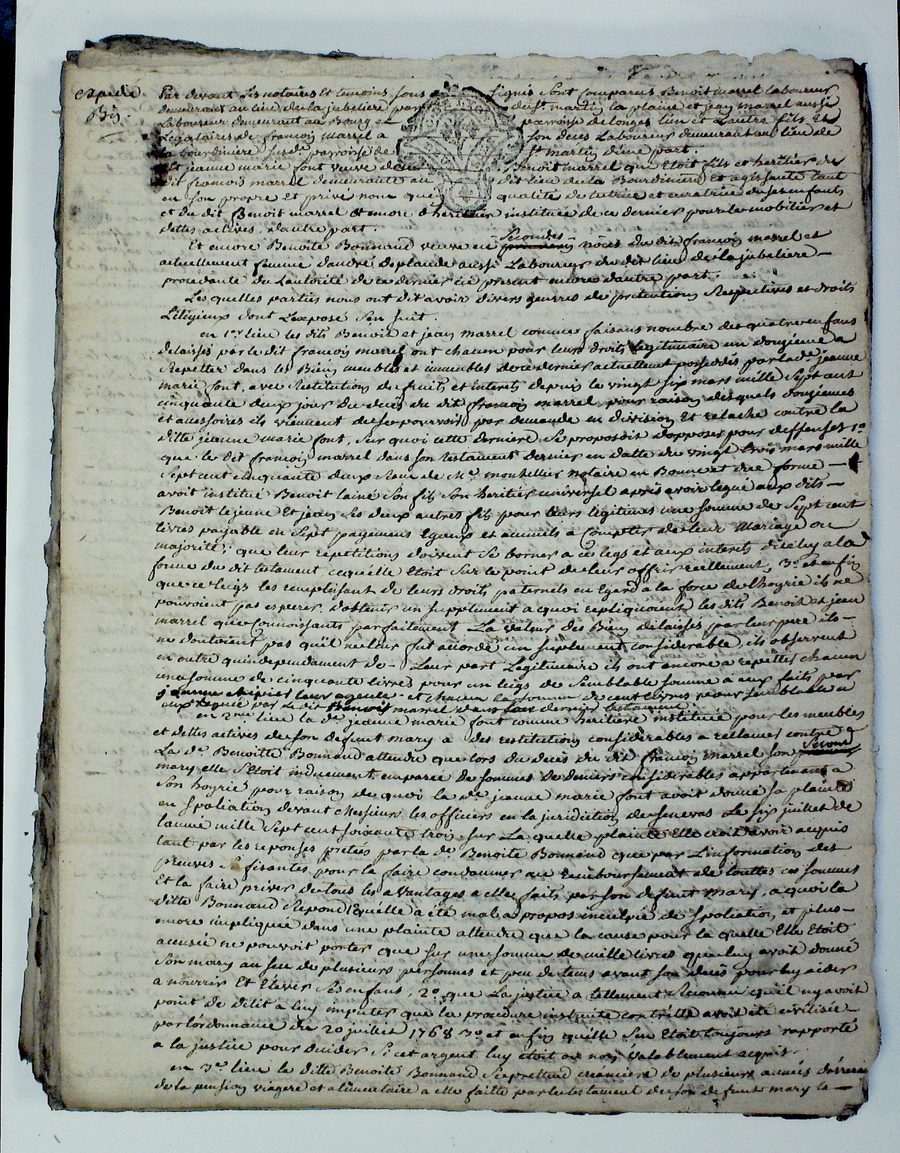 expedié
Par devant Les notaires et temoins sous signés sont comparus Benoit marrel Laboureur
demeurant au lieu de la jubeliere par du st. martin la plaine et jean marrel aussi
Laboureur demeurant au Bourg et parroisse de longes lun et L'autre fils et
Legataires de francois marrel a son deces Laboureur demeurant au lieu de
La bourdiniere susde. parroisse de st. martin d'une part.
Et jeanne marie font veuve d'autre Benoit marrel que Etoit fils et heritier du
dit francois marrel demeurante au dit lieu de la Bourdiniere et agissante tant
en son propre et privé nom que qualité de tutrice et curatrice de ses enfants
et du dit Benoit marrel et encore d'heritiere instituée de ce dernier pour le mobilier et
dettes actives d'autre part.
Et encore Benoite Bonnand veuve en secondes noces du dit francois marrel et
actuellement femme d'andré deplaude aussi Laboureur du dit lieu de la jubeliere
procedante de L'autorité de ce dernier icy present encore d'autre part.
Les quelles parties nous ont dit avoir divers genres de pretentions Respectives et droits
Litigieux dont L'expose s'en suit.
en 1er. lieu les dits Benoit et jean marrel comme faisans nombre des quatre enfans
delaissés par le dit francois marrel ont chacun pour leurs droits legitimaire un douzieme a
Repetter dans les Biens meubles et immeubles de ce dernier actuellement possedés par la de. jeanne
marie font, avec Restitutions de fruits et interets depuis le vingt six mars mille sept cent
cinquante deux jour du deces du dit francois marrel, pour raison desquels douziemes
et accessoires ils viennent de se pourvoir par demande en division et relache contre la
ditte jeanne marie font, sur quoi cette derniere se proposoit d'opposer pour deffenses 1o.
que le dit francois marrel dans son testament dernier en datte du vingt trois mars mille
sept cent cinquante deux Recu de Me. montellier notaire en Bonne et due forme
avoit institué Benoit lainé son fils son heritier universel apres avoir legué aux dits
Benoit le jeune et jean ses deux autres fils pour leurs legitimes une somme de sept cent
livres payable en sept payemens Egaux et annuels a compter de leur mariage ou
majorité, que leur repetitions doivent se borner a ces legs et aux interets d'iceluy a la
forme du dit testament ce quelle Etoit sur le point de leur offrir reellement, 3o. et enfin
que ce legs les remplissant de leurs droits paternels eu Egard a la force de l'hoyrie ils ne
pouvoient pas esperer d'obtenir un supplement a quoi repliquoient les dits Benoit et jean
marrel que connoissants parfaitement La valeur des Biens delaissés par leur pere ils
ne doutoient pas qu'il ne leur fut accordé un suplement considerable ils observent
en outre qu'independament de Leur part Legitimaire ils ont encore a repetter chacun
une somme de cinquante livres pour un legs de semblable somme a eux faits par
leur ayeule et chacun la somme de cent livres pour semblable a
eux legué par le dit Benoit marrel dernier testament.
en 2me. lieu la de. jeanne marie font comme heritiere instituée pour les meubles
et dettes actives de son defunt mary a des restitutions considerables a reclamer contre
La de. Benoitte Bonnand attendu que lors du deces du dit francois marrel son second
mary elle s'etoit induement emparée de sommes de deniers considerables appartenant a
son hoyrie pour raison de quoi la de. jeanne marie font avoit donné sa plainte
en spoliation devant Messieurs les officiers en la juridiction de senevas Le six juillet de
l'année mille sept cent soixante trois, sur La quelle plainte elle croit avoir acquis
tant par les reponses pretées par la de. Benoite Bonnand que par L'information des
preuves suffisantes pour la faire condamner au Remboursement de touttes ces sommes
Et la faire priver de tous les avantages a elle faits par son defunt mary, a quoi la
ditte Bonnand Repond qu'elle a été mal a propos inculpée de spoliation, et plus
encore impliquée dans une plainte attendu que la cause pour la quelle Elle Etoit
accusée ne pouvoit porter que sur une somme de mille livres que luy avoit donné
son mary au seu de plusieurs personnes et peu de tems avant son deces pour luy aider
a nourrir Et Elever ses enfans, 2o. que La justice a tellement Reconnu qu'il ny avoit
point de delit a luy imputer que la procedure instruite contr'elle avoit été civilisée
par L'ordonnance du 20 juillet 1768 3o. et enfin qu'elle s'en Etoit toujours rapporté
a la justice pour decider si cet argent luy etoit ou non valablement acquis.
en 3me. lieu la ditte Benoite Bonnand se pretend creanciere de plusieurs années d'arrerages
de la pension viagere et alimentaire a elle faitte par le testament de son defunt mary la